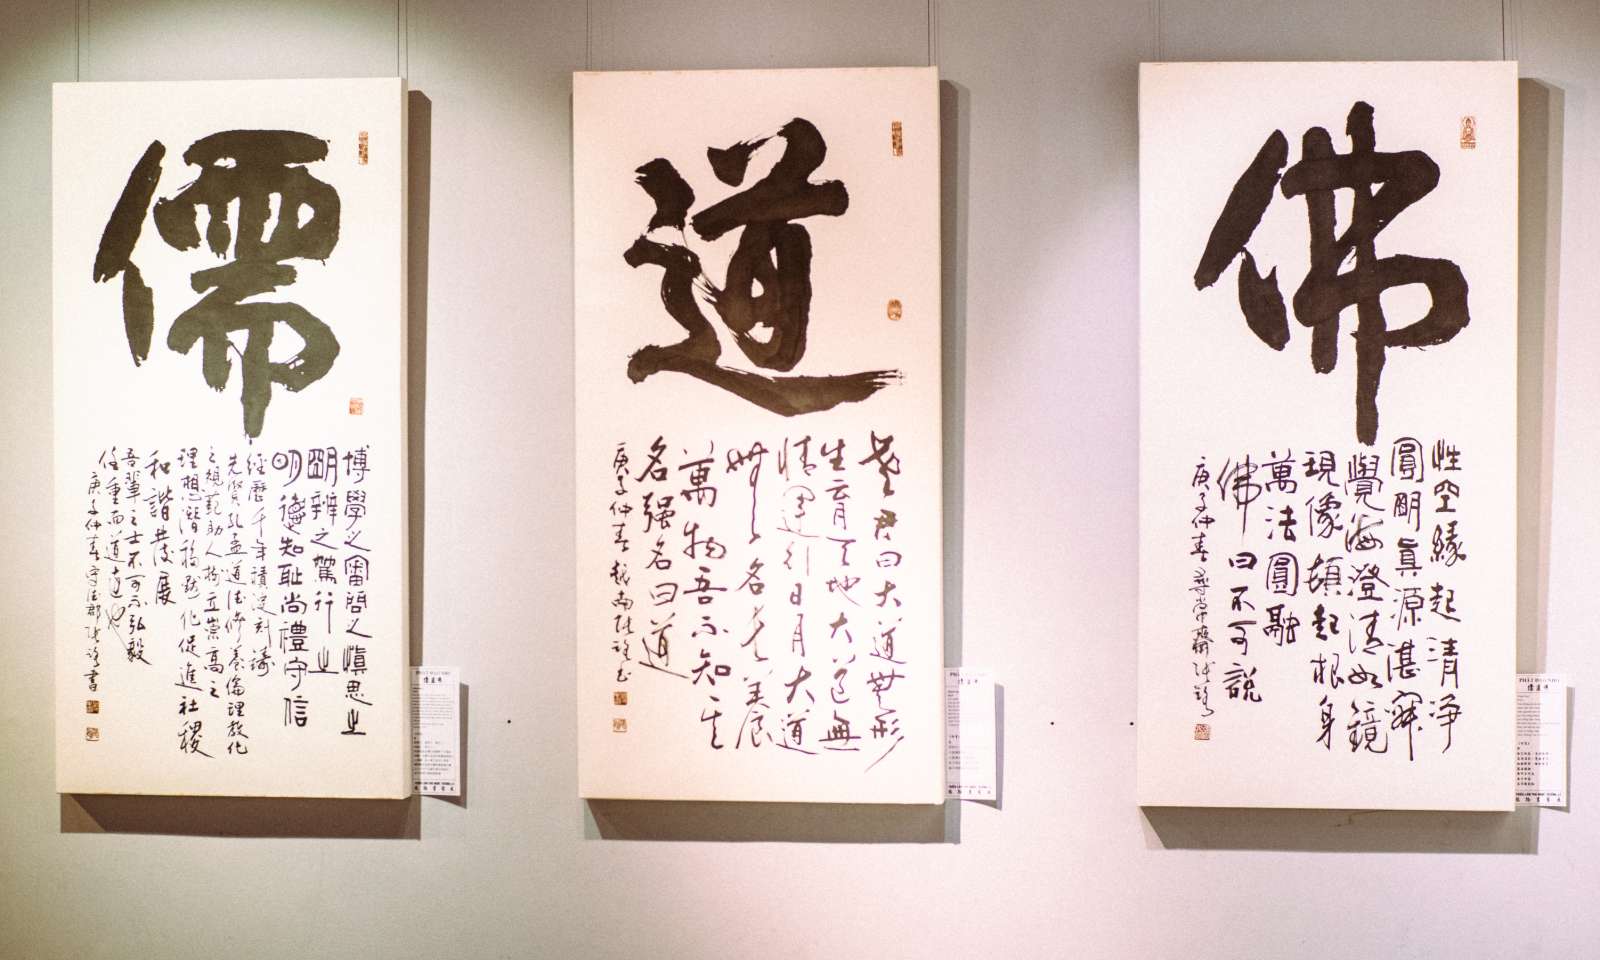 儒
博學之審問之慎思之
朙辨之篤行之
明德知恥尚禮守信
經歷千年積淀刻鑄
先賢孔孟道法修養倫理教化
之規範助人樹立崇高之
理想潛移默化促進社稷
和諧共發展
吾輩之士不可不弘毅
任重而道遠也
庚子仲春 書
道
老君曰大道無形
生育天地大道無
情運行日月大道
無名長養
萬物吾不知其
名强名曰道
庚子仲春越南
佛
性空緣起清淨
圓朙真源湛寂
覺海澄清如鏡
現像頓起根身
萬法圓融
佛曰不可說
庚子仲春尋常齋